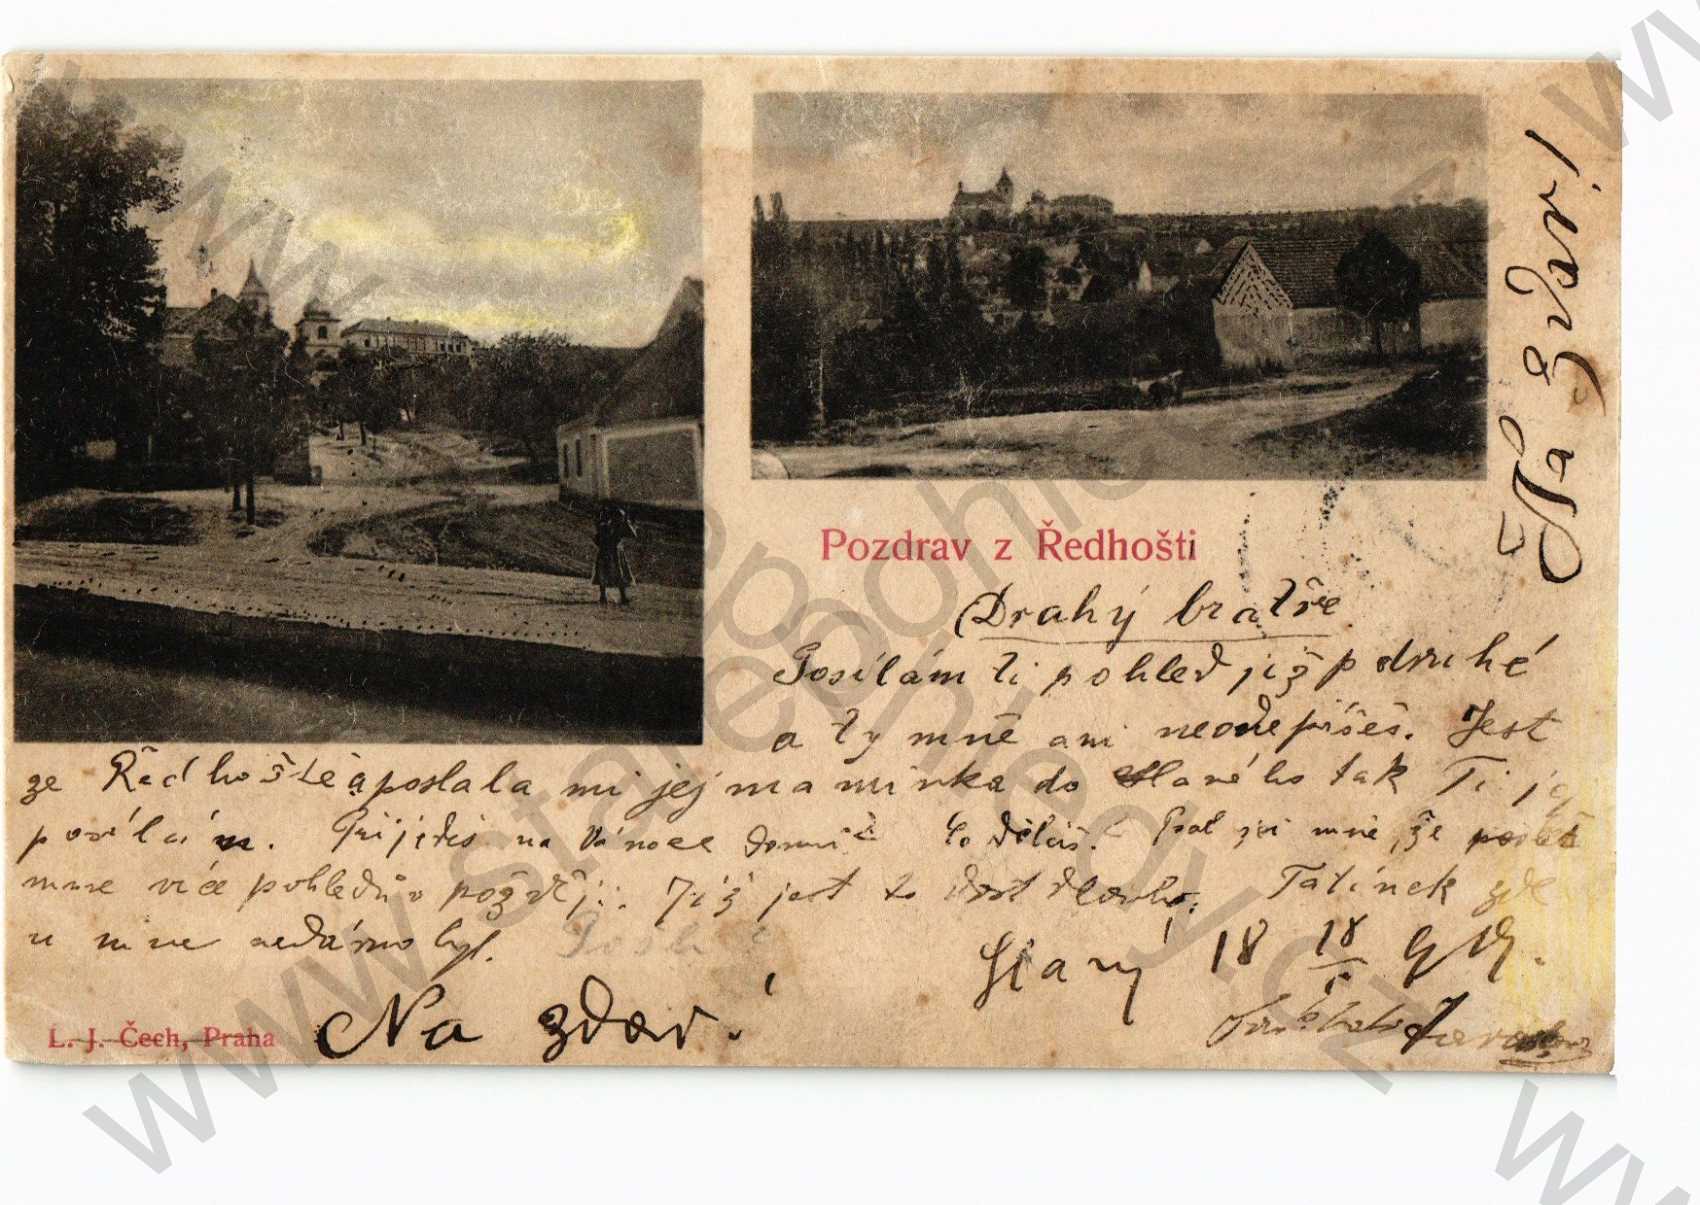 Pozdrav z Ředhošti
Drahý bratře
Posílám ti pohled již podruhé
a ty mně ani neodepíšeš. Jest
ze Ředhoště a poslala mi jej maminka do Slaného tak Ti jej
posílám. Přijedeš na Vánoce domů? Co děláš? Psal jsi mně, že
mne více pohledů později. Již jest to dost dlouho. Tatínek zde
u mne nedávno byl.
Slaný 18
Na zdar!
Na zdar!
L. J. Čech, Praha
www.starepohledy.cz